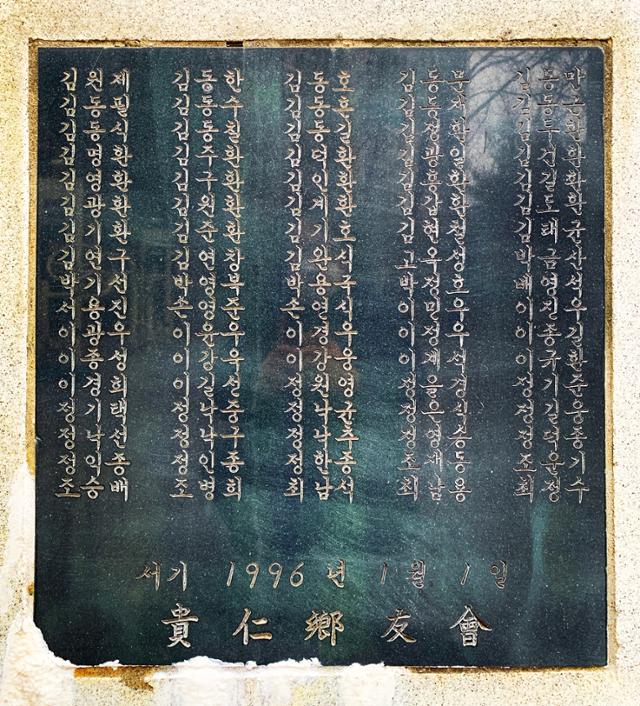 김원제 김동한 김동호 김동문 김동만
김동필 김동수 김동훈 김동재 김동근
김동식 김동칠 김동길 김성환 김두환
김명환 김주환 김덕환 김광일 김선환
김영환 김구환 김인환 김홍환 김길환
김광환 김원환 김계환 김갑환 김도환
김기환 김준환 김기호 김연철 김태균
김연구 김연창 김완식 고우성 김금산
박기선 박영복 박용국 박정호 박영석
서용진 손영준 손영식 이밀우 배진우
이광우 이윤우 이경우 이정우 이종길
이종성 이강욱 이강웅 이제석 이규환
이경희 이길성 이원영 정을경 이기준
정기택 정낙중 정낙균 정은식 정길웅
정낙선 정낙구 정낙주 정영승 정덕홍
정익종 정인종 정한종 조새동 정윤기
조승배 조병희 최남석 최남용 최정수
서기 1996년 1월 1일
貴仁鄕友會